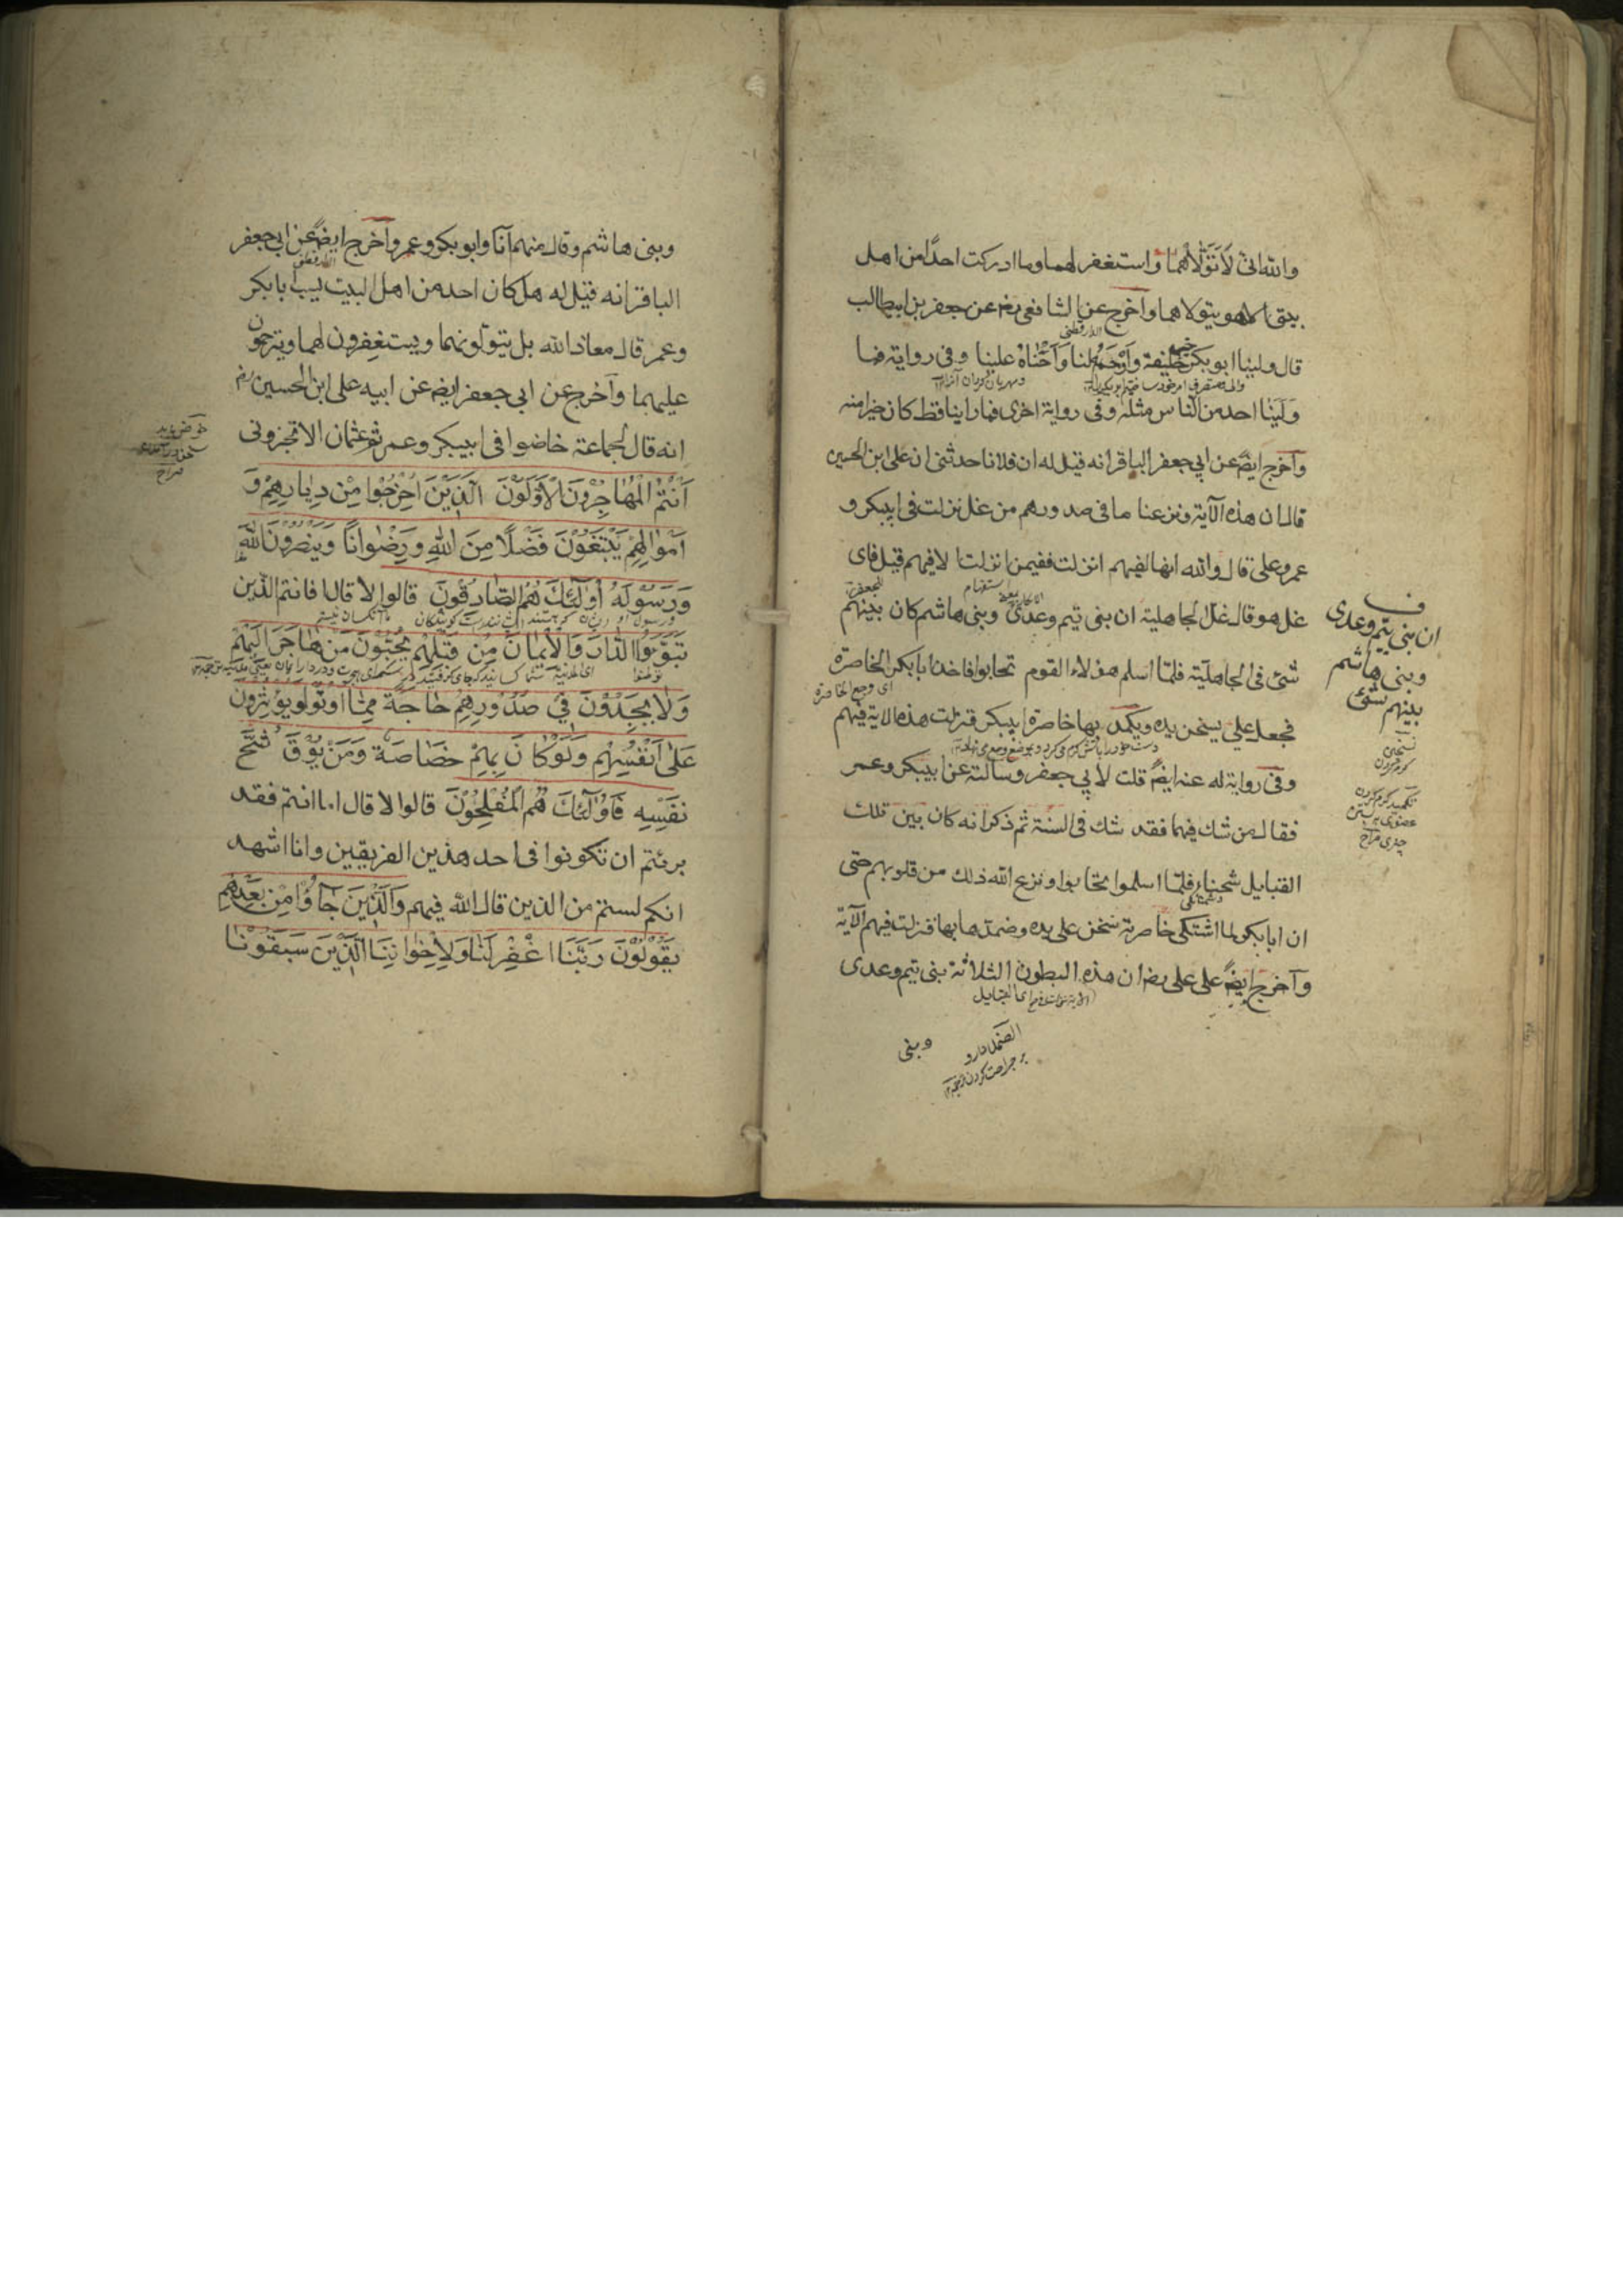 والله انى لَاَتَوَلَّاهُمَا واستغفر لهما وما ادركت احدًا من اهل
بيتى الا هو يتولاهما وآخرج عن الشافعى رض عن جعفر بن ابيطالب
الدارقطنى
قال ولينا ابوبكر خير خليفة وَاَرْحَمُه لنا وَاَحْنَاهُ علينا وفى رواية فما
وَلِيَنا احد من الناس مثله وفى رواية اخرى فما راينا قط كان خيرا منه
وآخرج ايضً عن ابي جعفر الباقر انه قيل له ان فلانا حدثنى ان على ابن الحسين
قال ان هذه الآية ونزعنا ما فى صدورهم من غل نزلت فى ابيبكر و
عمر وعلى قال والله انها لفيهم انزلت ففيمن انزلت الا فيهم قيل فاى
غل هو قال غل الجاهلية ان بنى تيم وعدى وبنى هاشم كان بينهم
شئ فى الجاهلية فلما اسلم هؤلاء القوم تحابوا فاخذ ابابكر الخاصرة
اى وجع الخاصرة
فجعل على يسخن يده ويكمد بها خاصرة ابيبكر فنزلت هذه الاية فيهم
وفى رواية له عنه ايضً قلت لابي جعفر وسالته عن ابيبكر وعمر
فقال من شك فيهما فقد شك فى السنة ثم ذكر انه كان بين تلك
القبايل شحناء فلما اسلموا تحابوا ونزع الله ذلك من قلوبهم حتى
ان ابابكر لما اشتكى خاصرته سخن على يده وضمدها بها فنزلت فيهم الآية
وآخرج ايضً على على رض ان هذه البطون الثلاثة بنى تيم وعدى
وبنى
ان بنى تيم وعدى
وبنى هاشم
بينهم شئ
تسخين
كرم كردن
وبنى هاشم وقال منهم انا وابوبكر وعمر وآخرج ايضً عن ابي جعفر
الدارقطنى
الباقر انه قيل له هل كان احد من اهل البيت يسب ابابكر
وعمر قال معاذ الله بل يتولونهما ويستغفرون لهما ويترحمون
عليهما وآخرج عن ابى جعفر ايضً عن ابيه على ابن الحسين رض
انه قال لجماعة خاضوا فى ابيبكر وعمر ثم عثمان الا تخبرونى
اَنْتُمُ الْمُهَاجِرُونَ الْاَوَّلُوْنَ الَّذِيْنَ اُخْرِجُوا مِنْ دِيَارِهِمْ وَ
اَمْوَالِهِمْ يَبْتَغُوْنَ فَضْلًا مِنَ اللّٰهِ وَرِضْوَانًا وَيَنْصُرُوْنَ اللّٰهَ
وَرَسُوْلَهُ اُولٰئِكَ هُمُ الصَّادِقُونَ قالوا لا قال فانتم الذين
تَبَوَّؤُا الدَّارَ وَالْاِيْمَانَ مِنْ قَبْلِهِمْ يُحِبُّوْنَ مَنْ هَاجَرَ اِلَيْهِمْ
وَلَا يَجِدُوْنَ فِيْ صُدُوْرِهِمْ حَاجَةً مِمَّا اُوْتُوْا وَيُؤْثِرُوْنَ
عَلٰى اَنْفُسِهِمْ وَلَوْ كَانَ بِهِمْ خَصَاصَةٌ وَمَنْ يُوْقَ شُحَّ
نَفْسِهِ فَاُولٰئِكَ هُمُ الْمُفْلِحُوْنَ قالوا لا قال اما انتم فقد
برئتم ان تكونوا فى احد هذين الفريقين وانا اشهد
انكم لستم من الذين قال الله فيهم وَالَّذِيْنَ جَاؤُا مِنْ بَعْدِهِمْ
يَقُوْلُوْنَ رَبَّنَا اغْفِرْ لَنَا وَلِاِخْوَانِنَا الَّذِيْنَ سَبَقُوْنَا